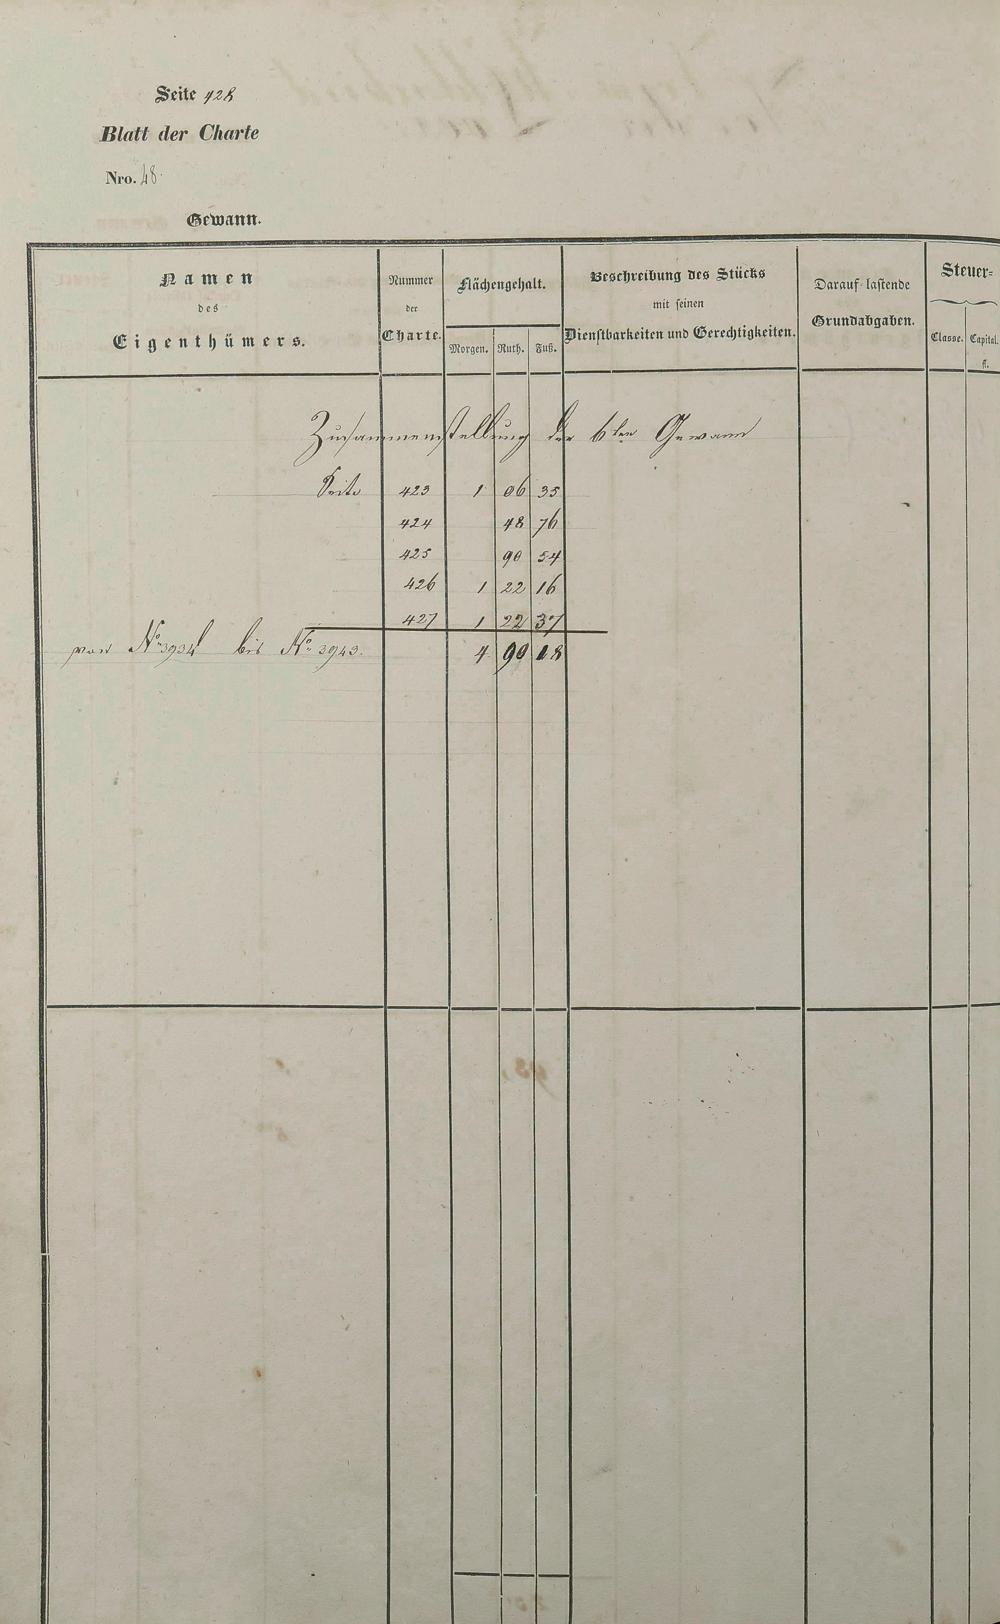 Seite 428
Blatt der Charte
Nro. 48.
Gewann.
Namen des Eigenthümers.
Nummer der Charte.
Flächengehalt.
Morgen. Ruth. Fuß.
Beschreibung des Stücks mit seinen Dienstbarkeiten und Gerechtigkeiten.
Darauf lastende Grundabgaben.
Steuer-
Classe. Capital. fl.
Zusammenstellung der 6ten Gewann
Seite 423 1 06 35
424 48 76
425 90 54
426 1 22 16
427 1 22 37
von No 3934 bis No 3943. 4 90 18